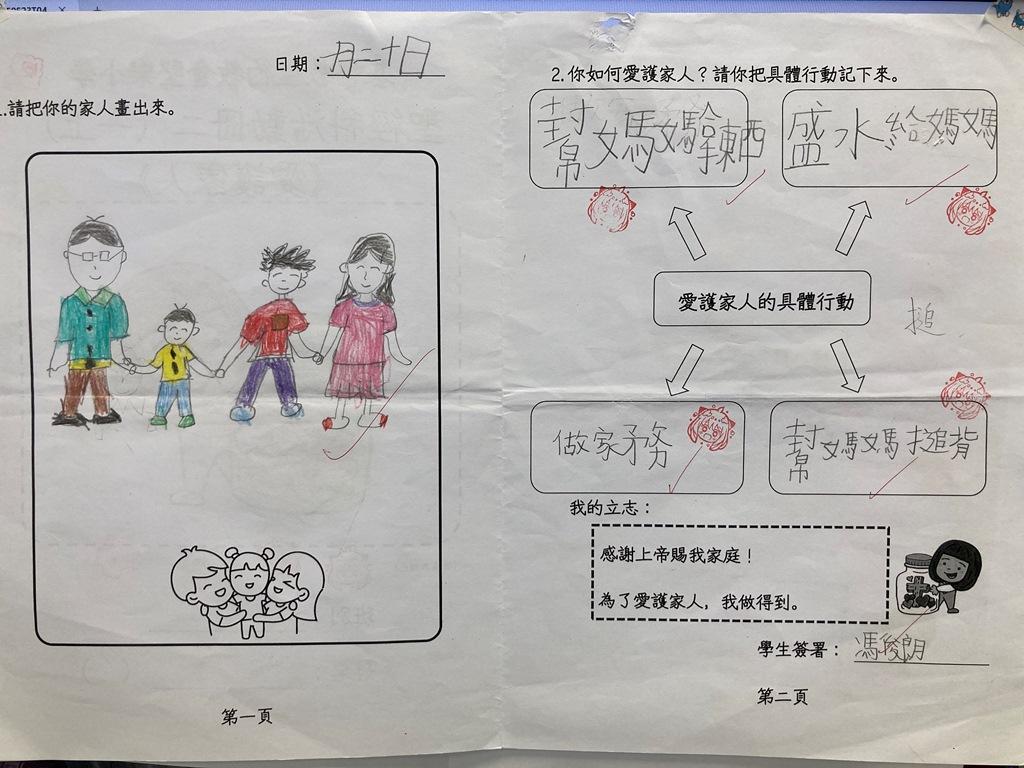 日期：月二十日
1.請把你的家人畫出來。
第一頁
2.你如何愛護家人？請你把具體行動記下來。
幫媽媽拿東西
盛水給媽媽
愛護家人的具體行動
搥
做家務
幫媽媽搥背
我的立志：
感謝上帝賜我家庭！
為了愛護家人，我做得到。
學生簽署：馮俊朗
第二頁